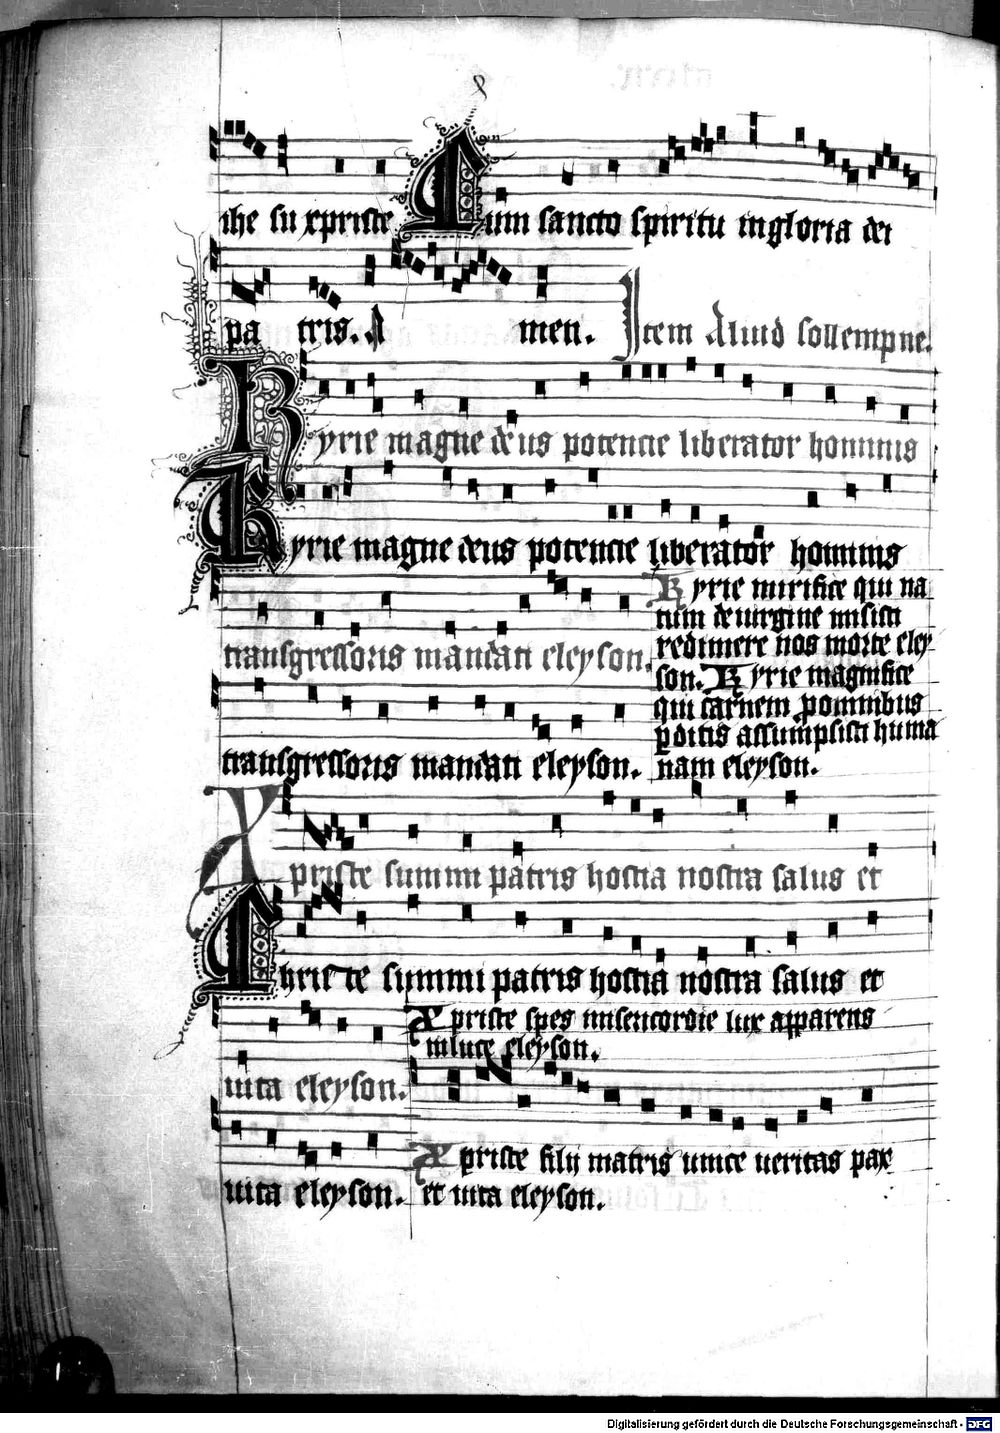 ihe su xpriste Cum sancto spiritu in gloria dei
pa tris. A men. Item Aliud sollempne.
Kyrie magne deus potencie liberator hominis
Kyrie magne deus potencie liberator hominis
transgressoris mandati eleyson.
Kyrie mirifice qui na
tum de uirgine misisti
redimere nos morte eley
son. Kyrie magnifice
qui carnem pro omnibus
pditis assumpsisti huma
nam eleyson.
transgressoris mandati eleyson.
Xpriste summi patris hostia nostra salus et
Christe summi patris hostia nostra salus et
uita eleyson.
Xpriste spes misericordie lux apparens
in luce eleyson.
Xpriste filij matris unice ueritas pax
uita eleyson. et uita eleyson.
Digitalisierung gefördert durch die Deutsche Forschungsgemeinschaft - DFG